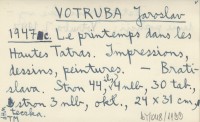 VOTRUBA Jaroslav
1947 c. Le printemps dans les
Hautes Tatras. Impressions,
dessins, peintures. – Brati-
slava. Stron 44, nlb, 30 tab,
stron 3 nlb, okł., 24 x 31 cm,
teczka.